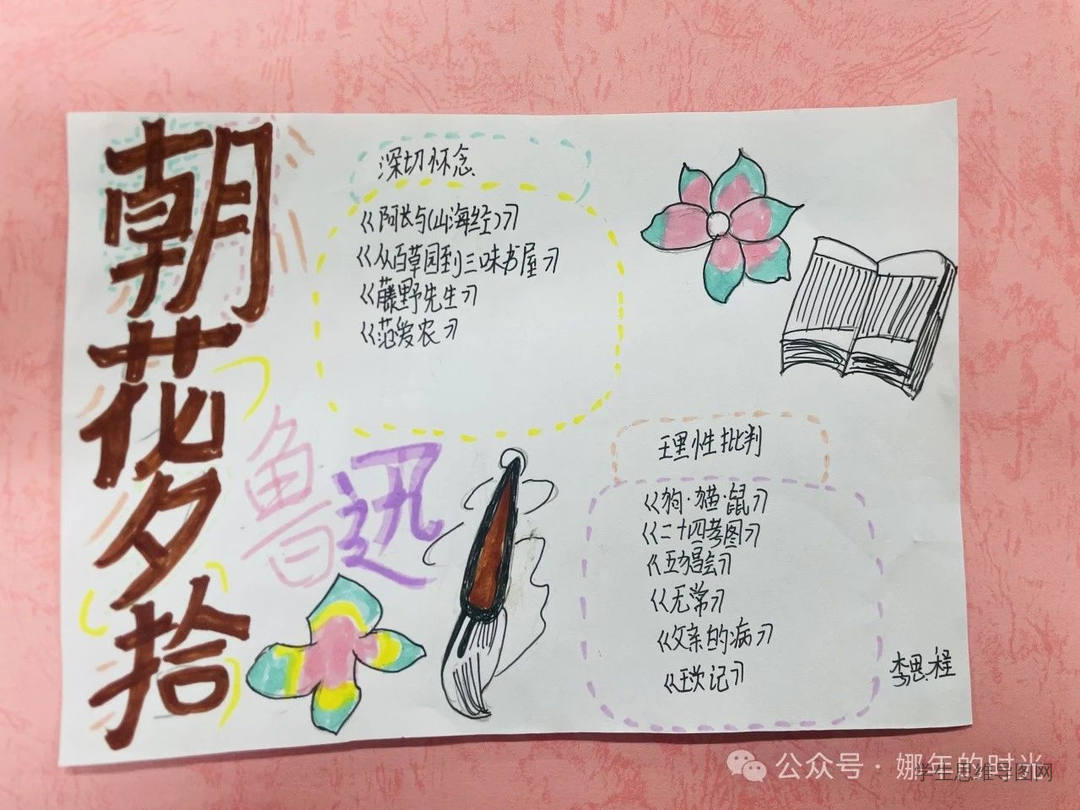 朝花夕拾
鲁迅
深切怀念
《阿长与(山海经)》
《从百草园到三味书屋》
《藤野先生》
《范爱农》
理性批判
《狗·猫·鼠》
《二十四孝图》
《五猖会》
《无常》
《父亲的病》
《琐记》
李思程
公众号·娜年的时光
学生思维导图网